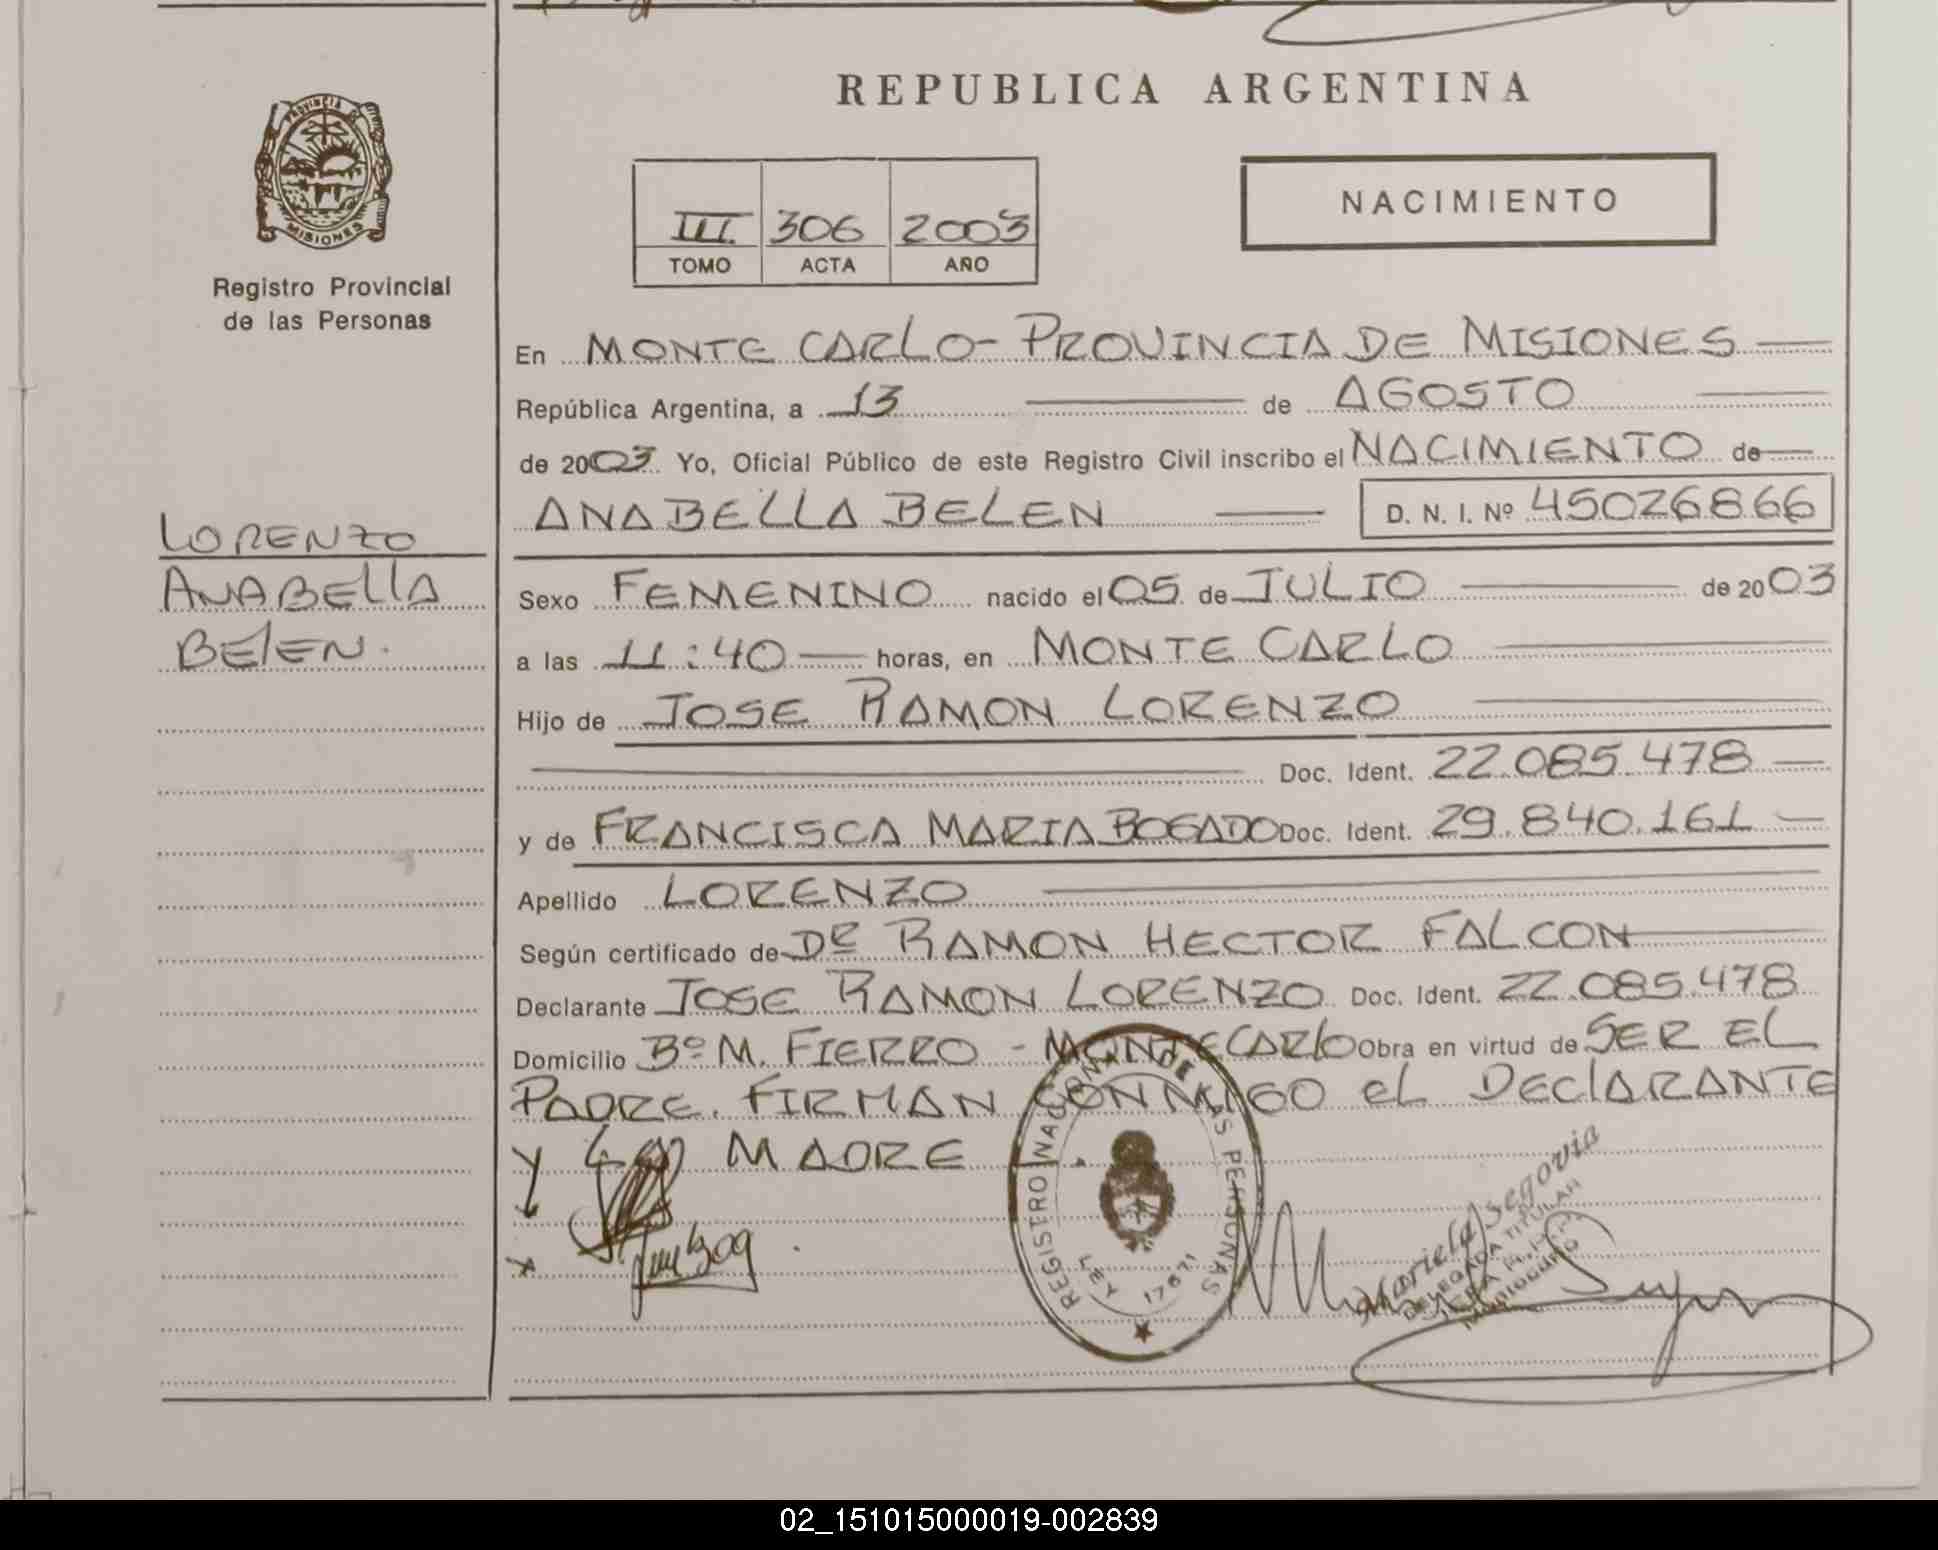 REPUBLICA ARGENTINA
PROVINCIA DE
MISIONES
Registro Provincial
de las Personas
III. 306 2003
TOMO ACTA AÑO
NACIMIENTO
En MONTE CARLO - PROVINCIA DE MISIONES
República Argentina, a 13 de AGOSTO
de 2003 Yo, Oficial Público de este Registro Civil inscribo el NACIMIENTO de
ANABELLA BELEN D. N. I. Nº 45026866
LORENZO
ANABELLA
BELEN.
Sexo FEMENINO nacido el 05 de JULIO de 2003
a las 11:40 horas, en MONTE CARLO
Hijo de JOSE RAMON LORENZO
Doc. Ident. 22.085.478
y de FRANCISCA MARIA BOGADO Doc. Ident. 29.840.161
Apellido LORENZO
Según certificado de DR RAMON HECTOR FALCON
Declarante JOSE RAMON LORENZO Doc. Ident. 22.085.478
Domicilio Bº M. FIERRO - MONTECARLO Obra en virtud de SER EL
PADRE. FIRMAN CONMIGO EL DECLARANTE
Y LA MADRE
REGISTRO NACIONAL DE LAS PERSONAS
LEY 17671
Mariela Segovia
DELEGADA TITULAR
02_151015000019-002839